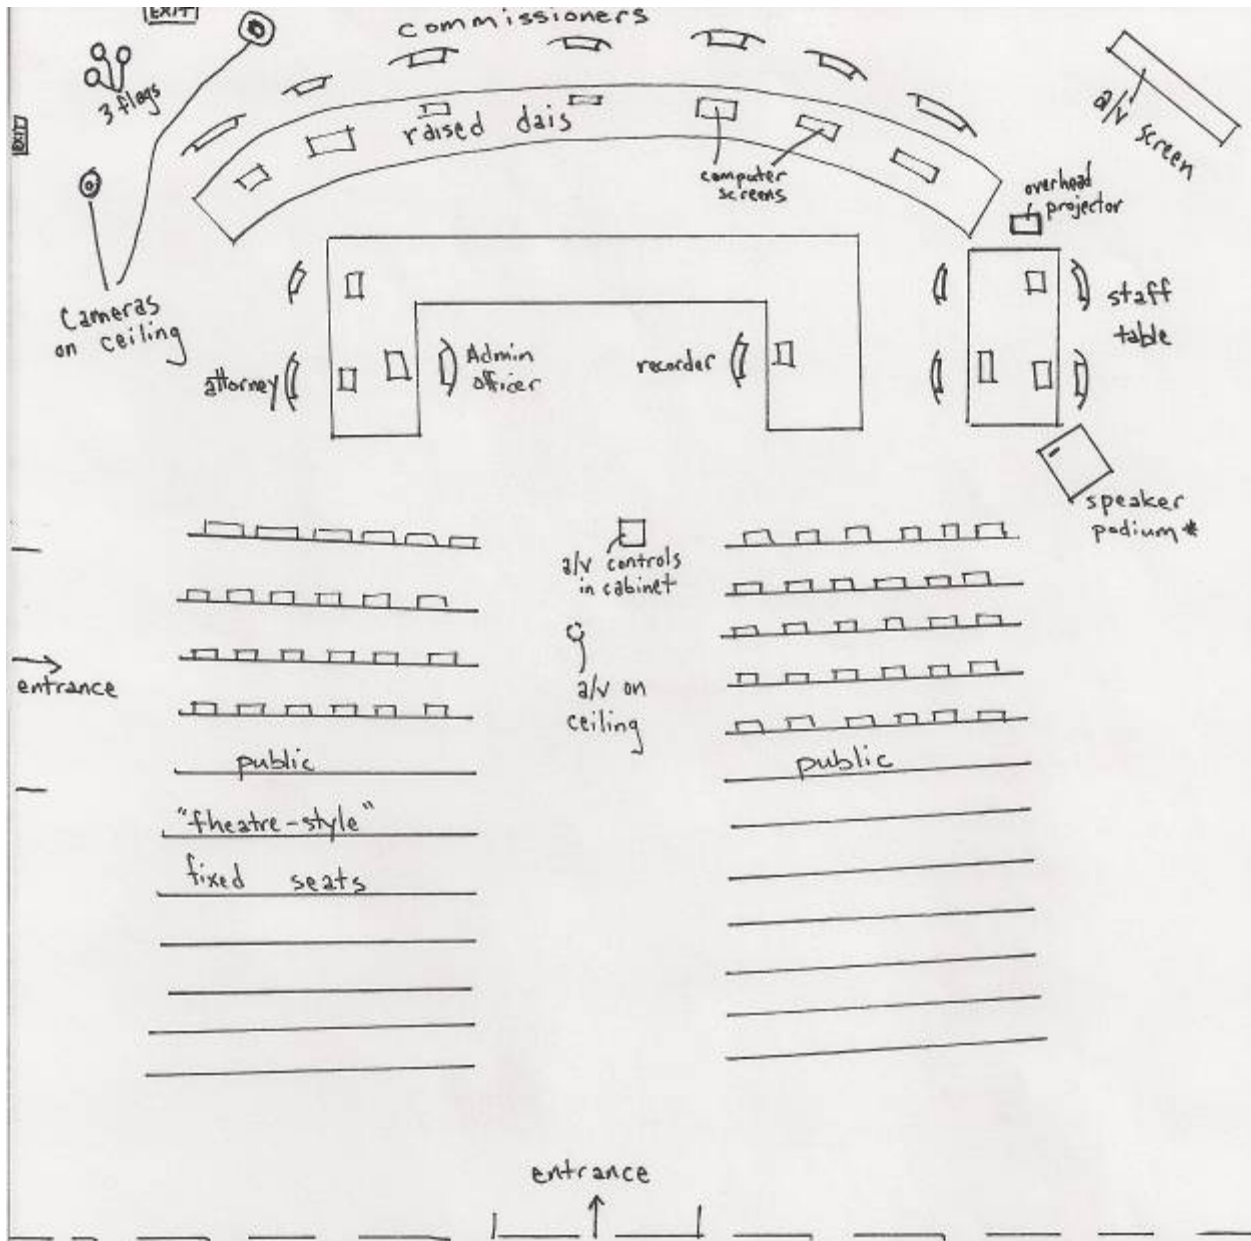 EXIT
commissioners
3 flags
EXIT
raised dais
a/v screen
computer
screens
overhead
projector
Cameras
on ceiling
staff
table
attorney
Admin
officer
recorder
speaker
podium *
a/v controls
in cabinet
entrance
a/v on
ceiling
public
public
"theatre-style"
fixed seats
entrance